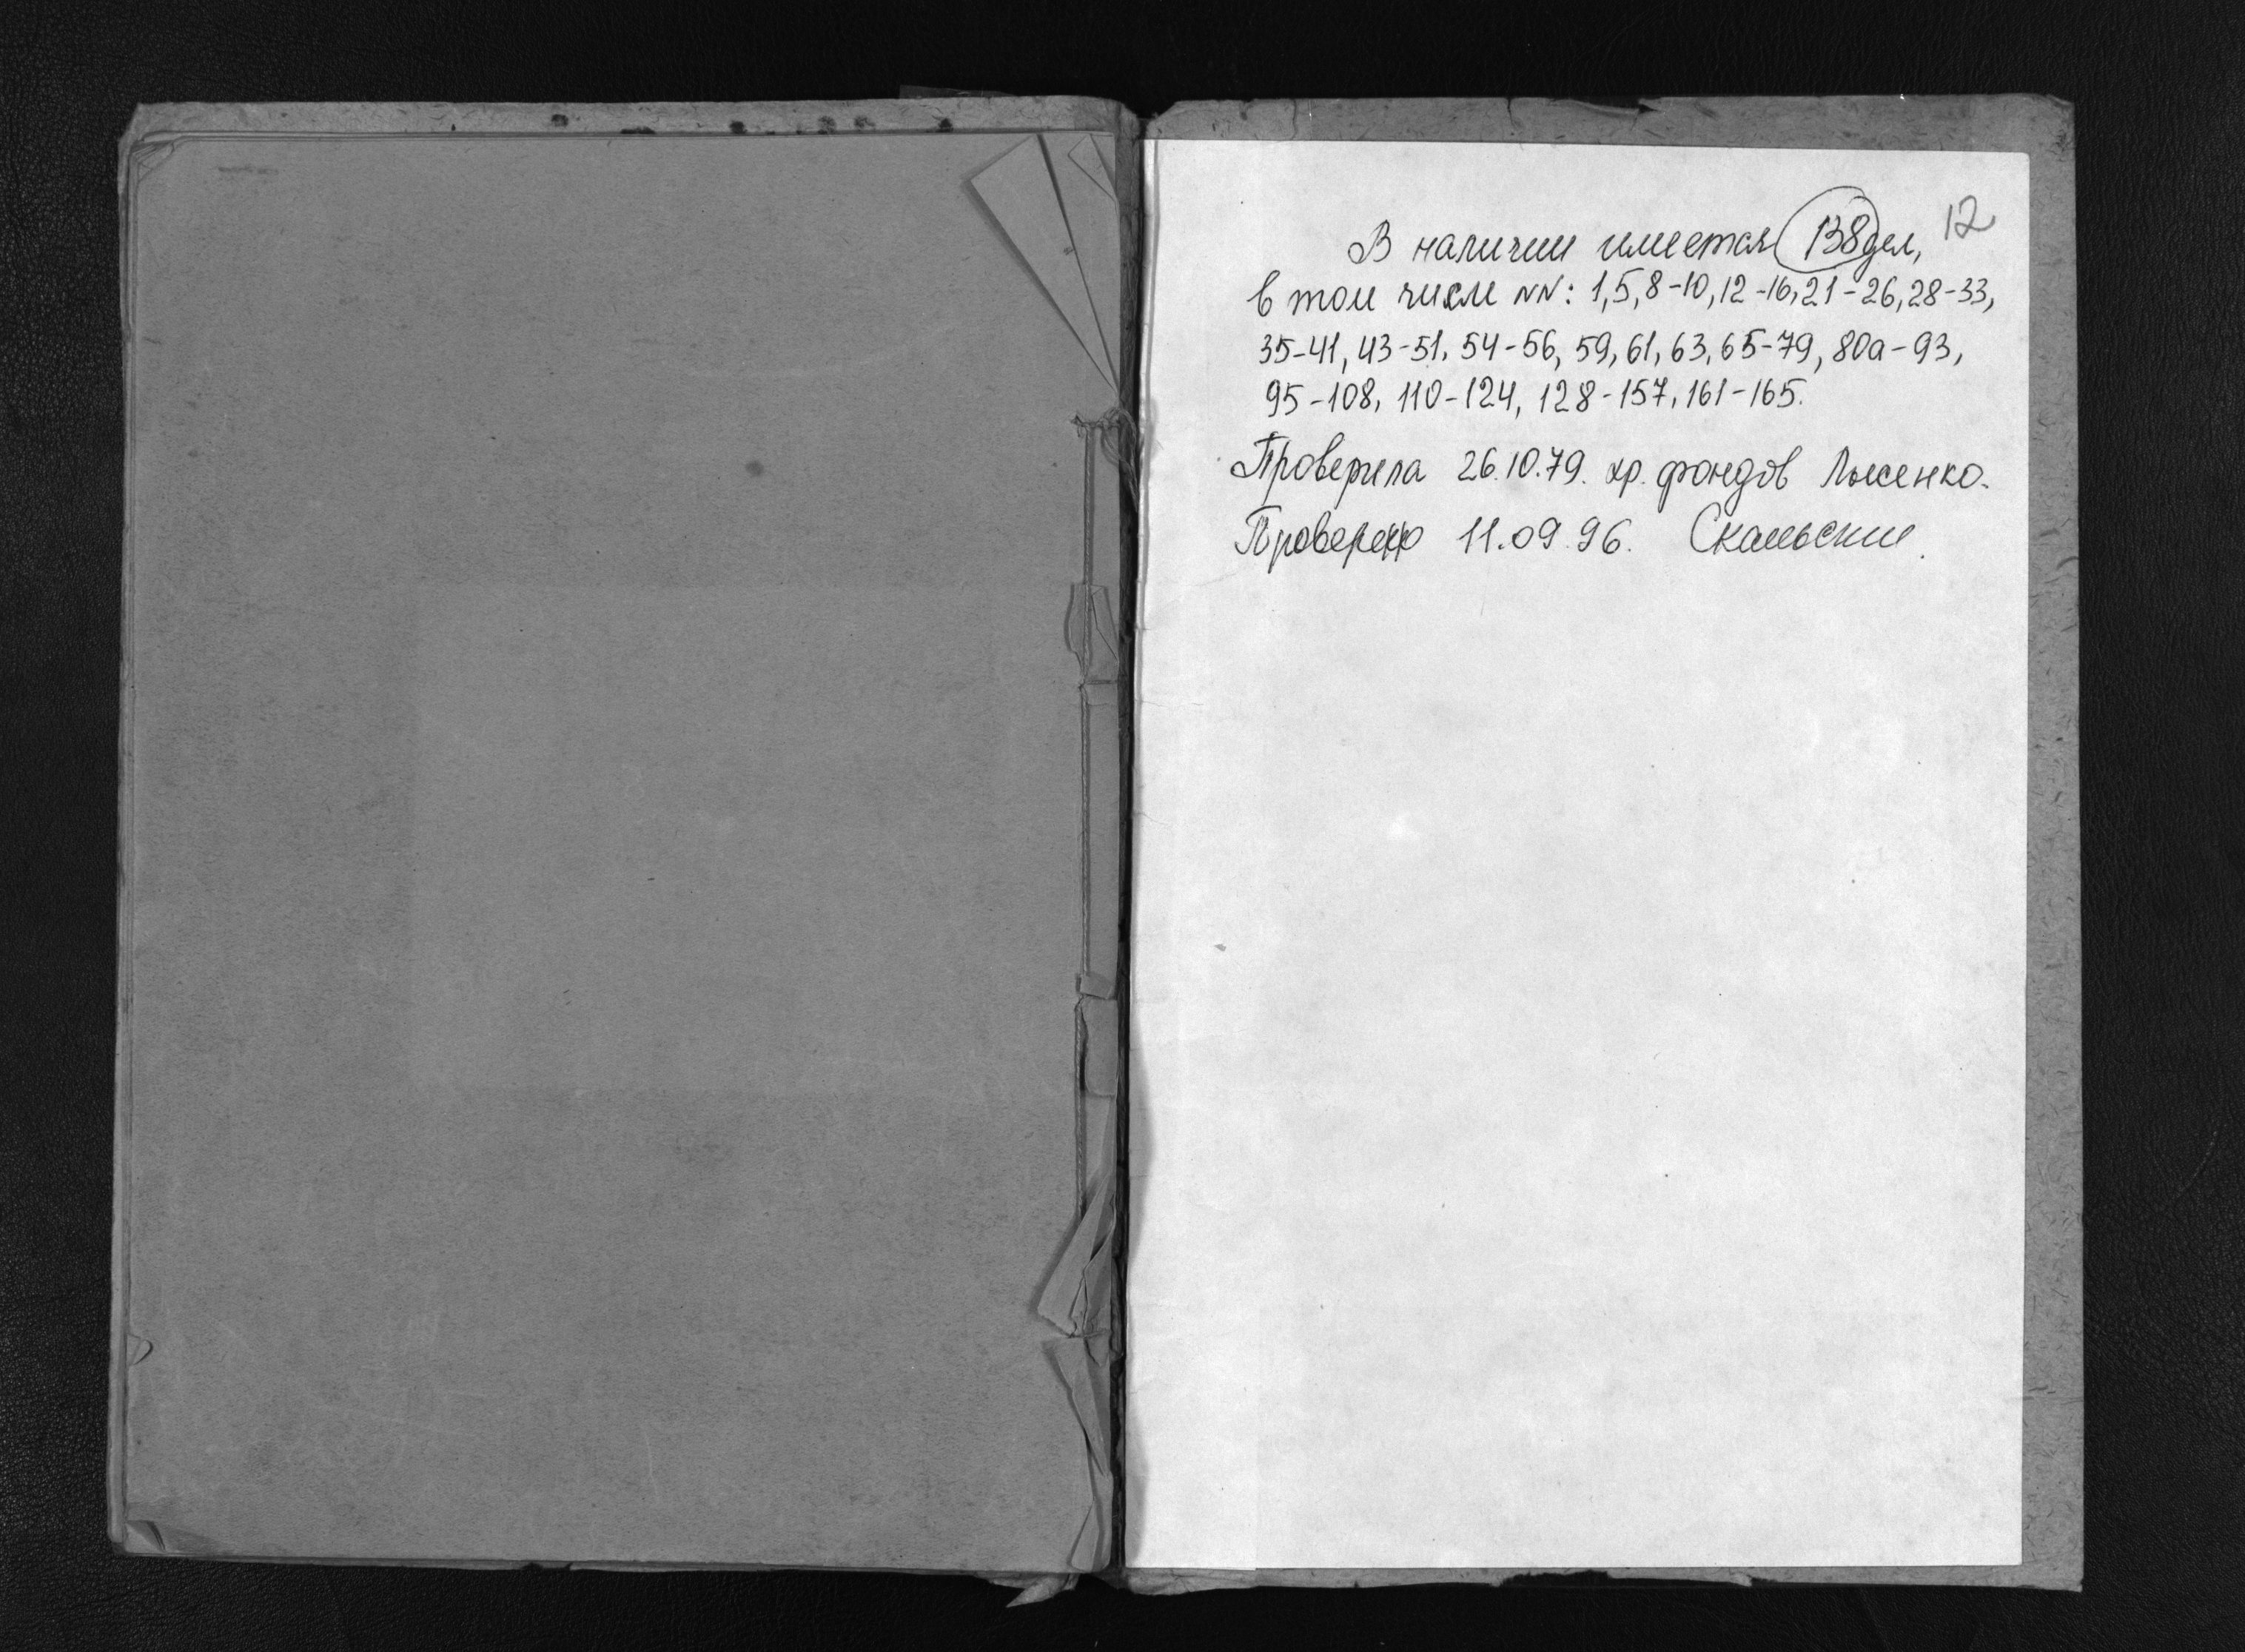 12
В наличии имеется 138 дел,
в том числе NN: 1,5,8-10,12-16,21-26,28-33,
35-41, 43-51, 54-56, 59, 61, 63, 65-79, 80а-93,
95-108, 110-124, 128-157, 161-165.
Проверила 26.10.79. хр. фондов Лысенко.
Проверено 11.09.96. Скальский